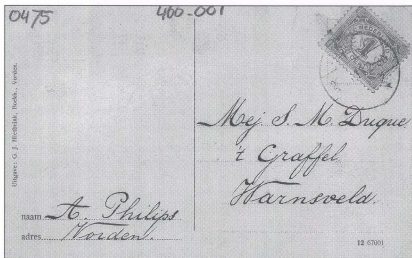 0475
400-001
Uitgave: G. J. Hietbrink, Boekh., Vorden.
Mej S. M. Duque
't Graffel
Warnsveld.
naam A. Philips
adres Vorden.
12 67001